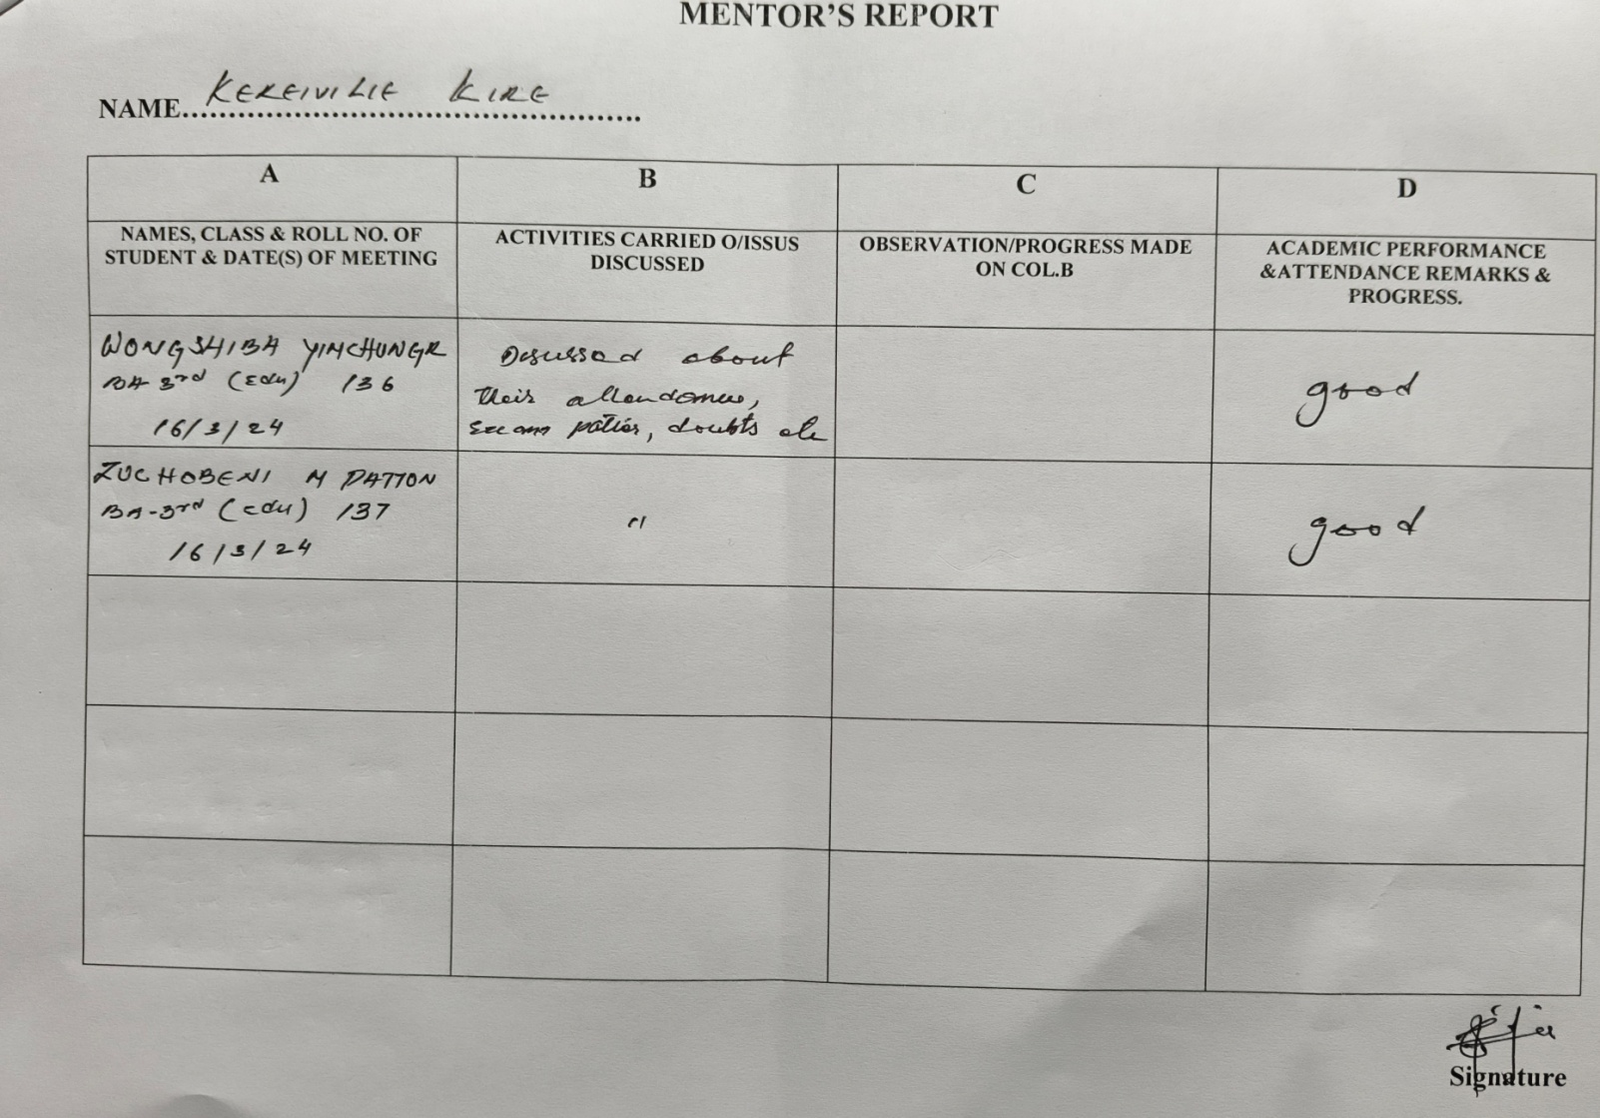 MENTOR'S REPORT
NAME
KIRE
A
B
C
D
NAMES, CLASS & ROLL NO. OF
STUDENT & DATE(S) OF MEETING
ACTIVITIES CARRIED O/ISSUS
DISCUSSED
OBSERVATION/PROGRESS MADE
ON COL.B
ACADEMIC PERFORMANCE
&ATTENDANCE REMARKS &
PROGRESS.
WONGSHIBA YIMCHUNGR
BA 3rd (Edu) 136
16/3/24
Discussed about
their attendance,
doubts etc
good
ZUCHOBENI M PATTON
BA-3rd (Edu) 137
16/3/24
"
good
Signature